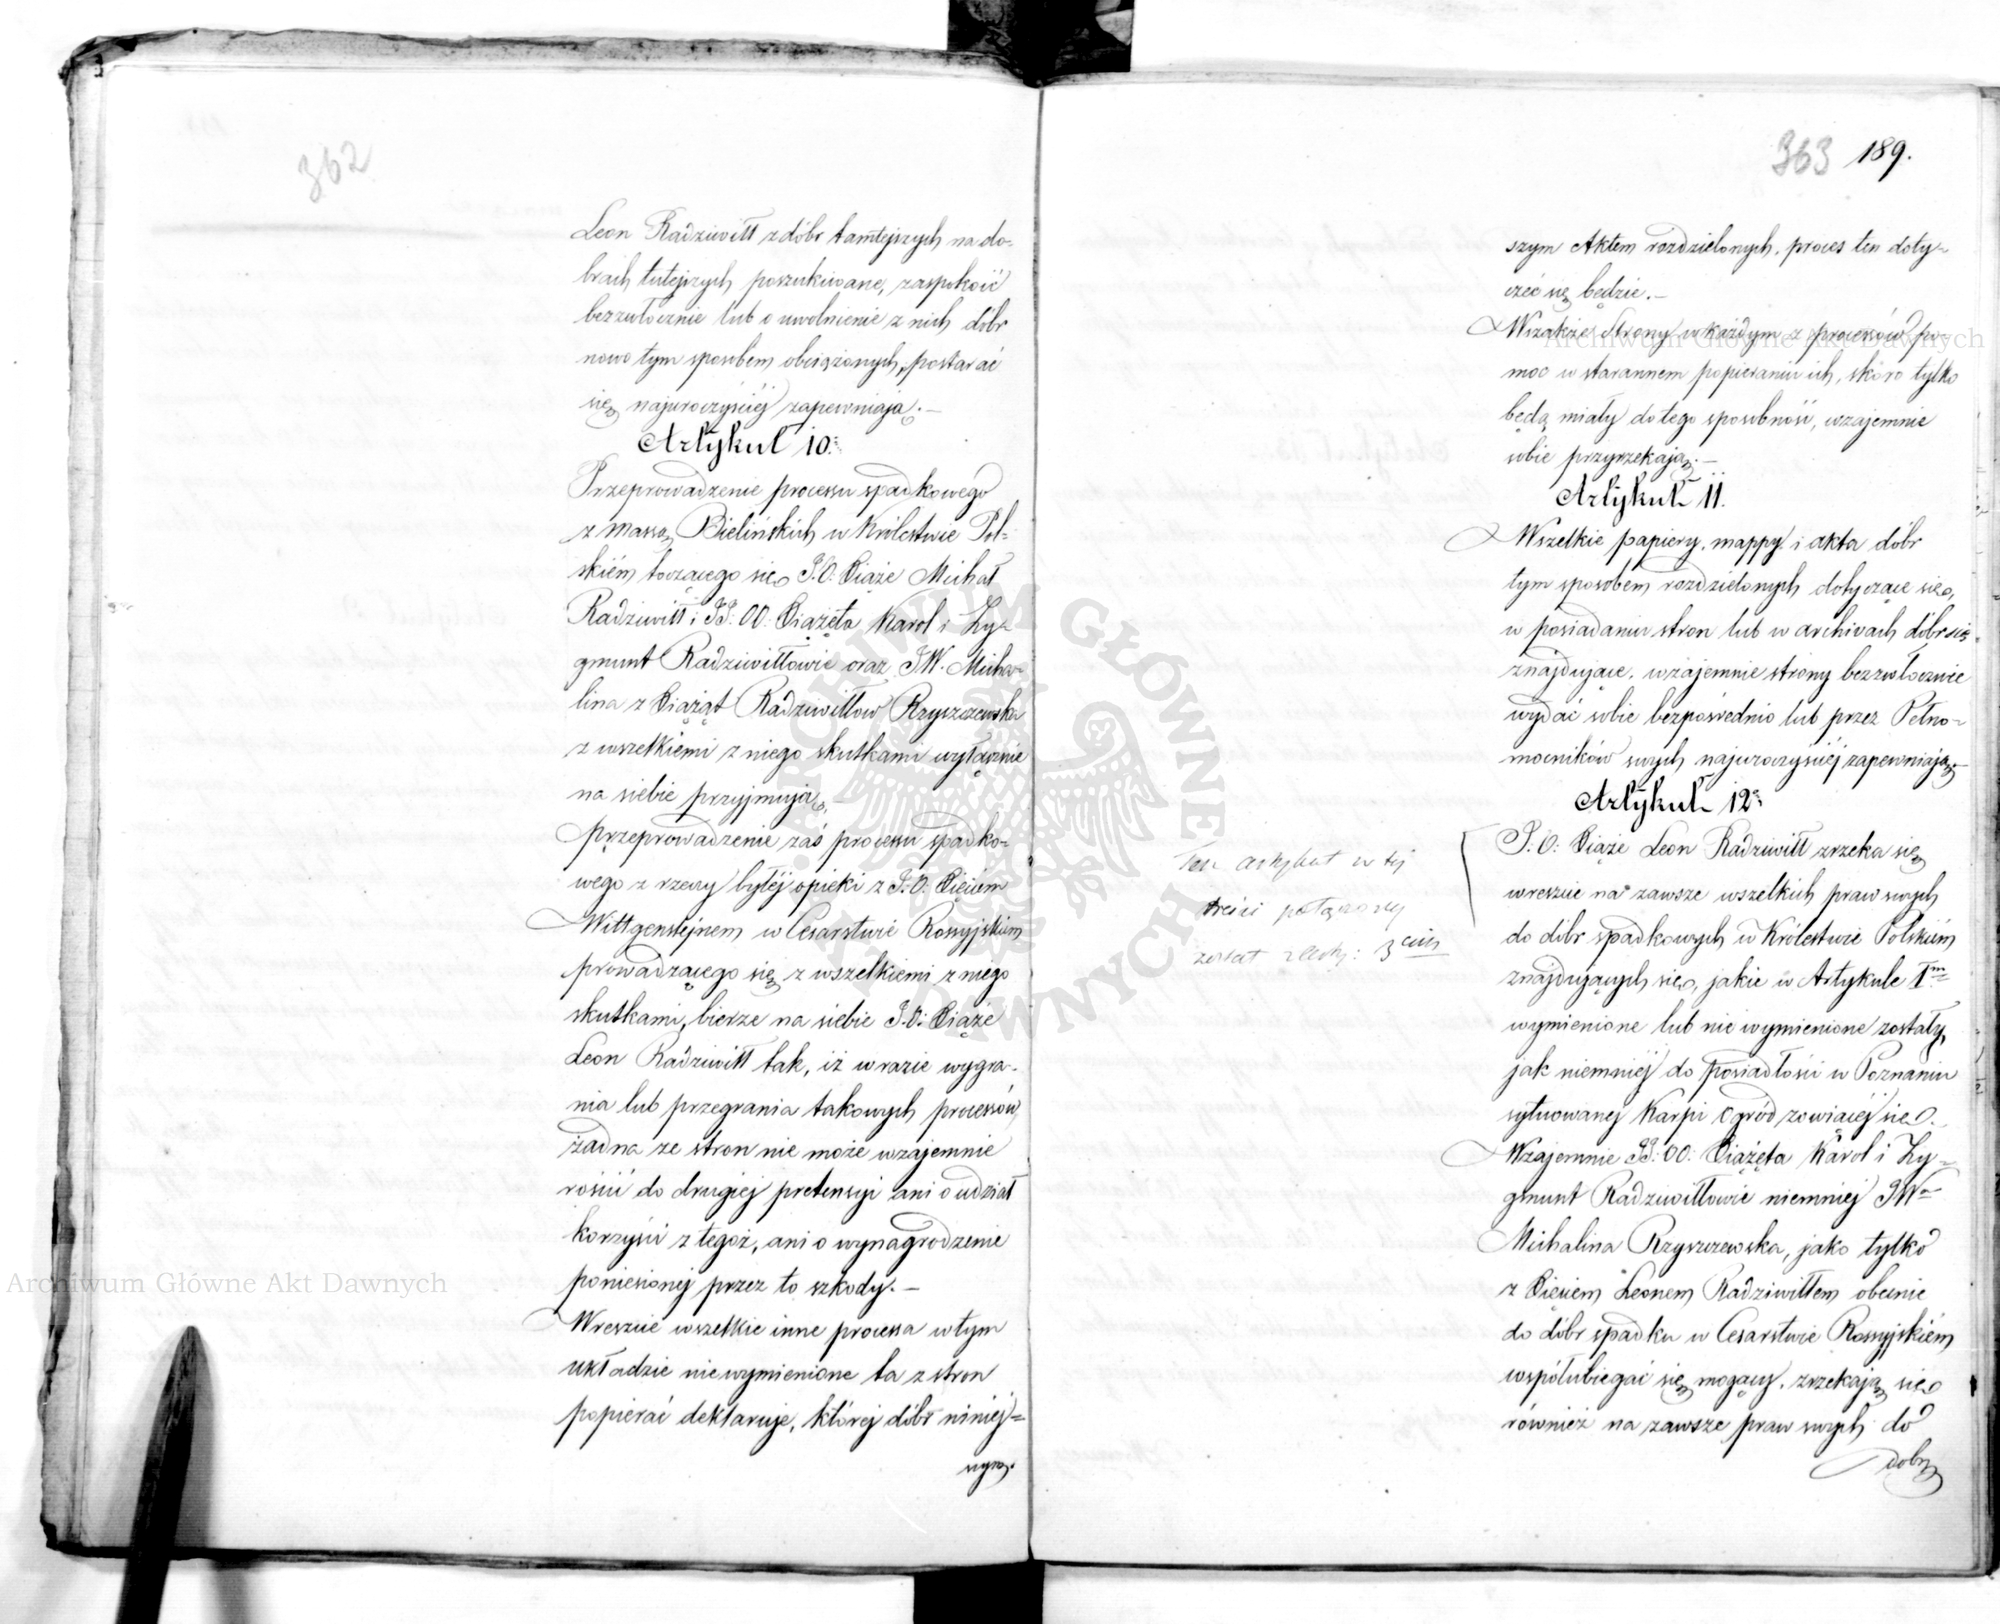 362
Leon Radziwiłł z dóbr tamtejszych na do-
brach tutejszych poszukiwane, zaspokoić
bezzwłocznie lub o uwolnienie z nich dóbr
nowo tym sposobem obciążonych, postarać
się najuroczyściej zapewniają.—
Artykuł 10:
Przeprowadzenie processu spadkowego
z massą Bielińskich w Królestwie Pol-
skiém toczącego się J.O. Xiąże Michał
Radziwiłł i JJ: OO: Xiążęta Karol i Zy-
gmunt Radziwiłłowie oraz JW. Micha-
lina z Xiążąt Radziwiłłow Rzyszczewska
z wszelkiemi z niego skutkami wyłącznie
na siebie przyjmują.—
Przeprowadzenie zaś processu spadko-
wego z rzeczy byłéj opieki z J: O: Xięciem
Wittgenstejnem w Cesarstwie Rossyjskiem
prowadzącego się z wszelkiemi z niego
skutkami, bierze na siebie J: O: Xiąże
Leon Radziwiłł tak, iż w razie wygra-
nia lub przegrania takowych processów,
żadna ze stron nie może wzajemnie
rościć do drugiej pretensyi ani o udział
korzyści z tegoż, ani o wynagrodzenie
poniesionéj przez to szkody.—
Wreszcie wszelkie inne processa w tym
układzie niewymienione ta z stron
popierać deklaruje, której dóbr niniej=
szym.
363 189.
szym Aktem rozdzielonych, proces ten doty-
czéć się będzie.—
Wszakże Strony w każdym z processów po-
moc w starannem popieraniu ich, skóro tylko
będą miały do tego sposobność, wzajemnie
sobie przyrzekają.—
Artykuł 11.
Wszelkie papiery, mappy i akta dóbr
tym sposobem rozdzielonych dotyczące się,
w posiadaniu stron lub w archivach dóbr się
znajdujące, wzajemnie strony bezzwłocznie
wydać sobie bezpośrednio lub przez Pełno-
mocników swych najuroczyściéj zapewniają.—
Artykuł 12:
J: O: Xiąże Leon Radziwiłł zrzeka się
wreszcie na zawsze wszelkich praw swych
do dóbr spadkowych w Królestwie Polskiém
znajdujących się, jakie w Artykule I<sup>m</sup>
wymienione lub nie wymienione zostały,
jak niemniéj do posiadłości w Poznaniu
sytuowanej Karpi Ogród zowiącéj się.
Wzajemnie JJ: OO: Xiążęta Karol i Zy-
gmunt Radziwiłłowie niemniej JW<sup>a</sup>
Michalina Rzyszczewska, jako tylko
z Xięciem Leonem Radziwiłłem obecnie
do dóbr spadku w Cesarstwie Rossyjskiém
współubiegać się mogący, zrzekają się
również na zawsze praw swych do
dobr
Ten artykuł w tej
treści połączonej
został
Archiwum Główne Akt Dawnych
Archiwum Główne Akt Dawnych
ARCHIWUM GŁÓWNE AKT DAWNYCH